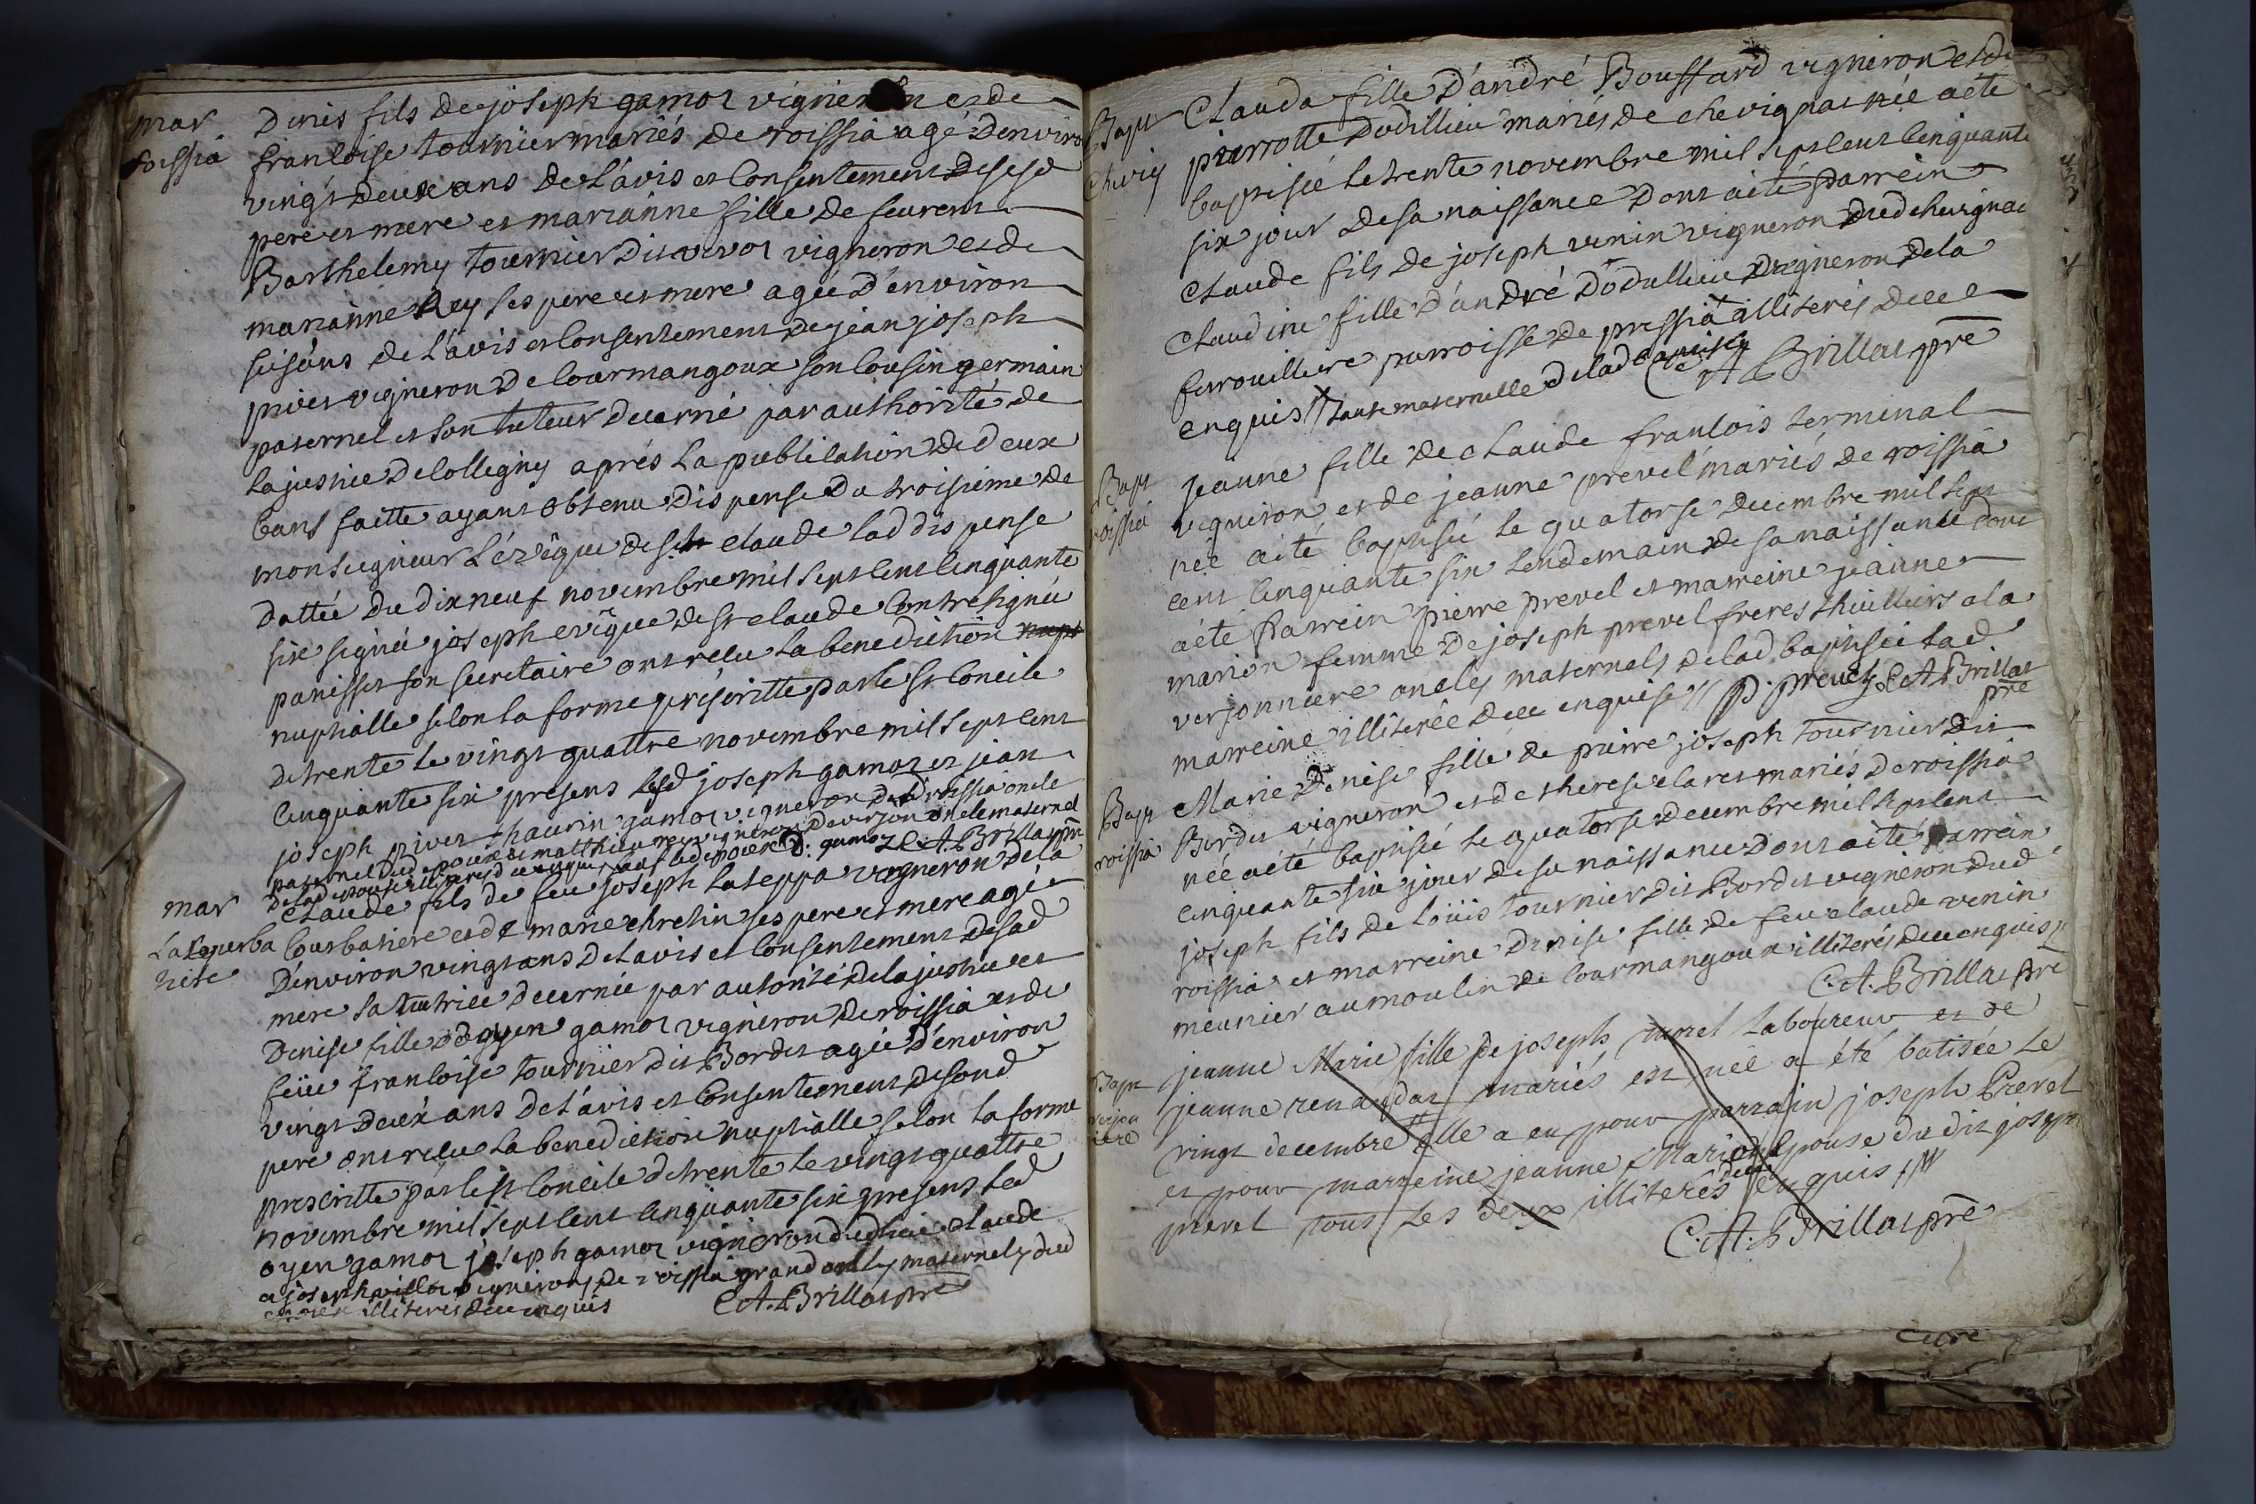 mar
roissia
Denis fils de joseph gamot vigneron et de
francoise tournier mariés de roissia agé denviro
vingt deux ans de l'avis et consentement de sesd
pere et mere et marianne fille de feu
Barthelemy tournier dit vervot vigneron et de
marianne Rey ses pere et mere agée d'environ
ans de l'avis et consentement de jean joseph
vigneron de courmangoux son cousin germain
paternel et son tuteur decerné par authorité de
la justice de colligny aprés la publication de deux
bans faitte ayant obtenu dispense du troisiéme de
monseigneur l'évêque de st claude lad dispense
dattée du dix neuf novembre mil sept cent cinquante
six signée joseph evêque de st claude contresignée
panisset son secretaire ont recu la benediction nupt
nuptialle selon la forme préscritte par le st concile
de trente le vingt quattre novembre mil sept cent
cinquante six presens led joseph gamot et jean
joseph thaurin gamot vigneron de roissia oncle
paternel dud epoux et matthieu rey vigneron de verjon oncle maternel
de lad epouse illiteres de ce enquis sauf led epoux D: gamoz C.A. Brillat pre
mar
La Courba
tiere
Claude fils de feu joseph Lateppa vigneron de la
Courbatiere et de marie chretin ses pere et mere agé
d'environ vingt ans de l'avis et consentement de sad
mere sa tutrice decernée par autorité de la justice et
Denise fille d'oyen gamot vigneron de roissia et de
feüe francoise tournier dit Bordet agée d'environ
vingt deux ans de l'avis et consentement de sond
pere ont recu la benediction nuptialle selon la forme
prescritte par le st concile de trente le vingt quattre
novembre mil sept cent cinquante six presens led
oyen gamot joseph gamot vigneron dud lieu claude
et joseph vignerons de roissia grand oncles maternels dud
illiteres de ce enquis C.A. Brillat pre
Bapt
chevig
Clauda fille d'andré Bouffard vigneron et de
pierrotte Dodillieu mariés de chevignat née a eté
baptisée le trente novembre mil sept cent cinquante
six jour de sa naissance dont a eté parrein
Claude fils de joseph venin vigneron dud chevignat
Claudine fille d'andré Dodillieu vigneron de la
ferouilliere parroisse de pressia illiterés de ce
enquis tante maternelle de lad baptisée C.A. Brillat pre
Bapt
roissia
jeanne fille de claude francois terminal
vigneron et de jeanne prevel mariés de roissia
née a eté baptisée le quatorse decembre mil sept
cent cinquante six lendemain de sa naissance dont
a eté parrein pierre prevel et marreine jeanne
marion femme de joseph prevel freres thuilliers a la
verjonniere oncles maternels de lad baptisée lad
marreine illiterée de ce enquise // p. prevel C.A. Brillat
pre
Bapt
roissia
Marie Denise fille de pierre joseph tournier dit
Bordet vigneron et de therese claret mariés de roissia
née a eté baptisée le quatorse decembre mil sept cent
cinquante six jour de sa naissance dont a eté parrein
joseph fils de Loüis tournier dit Bordet vigneron dud
roissia et marreine denise fille de feu claude venin
meunier au moulin de courmangoux illiterés de ce enquis
C.A. Brillat pre
Bapt
verjon
iere
jeanne Marie fille de joseph laboureur et de
jeanne renaudat mariés est née a été batisée le
vingt decembre elle a eu pour parrain joseph Prevel
et pour marreine jeanne Marion epouse du dit joseph
prevel tous les deux illiterés de ce enquis
C.A. Brillat pre
curé